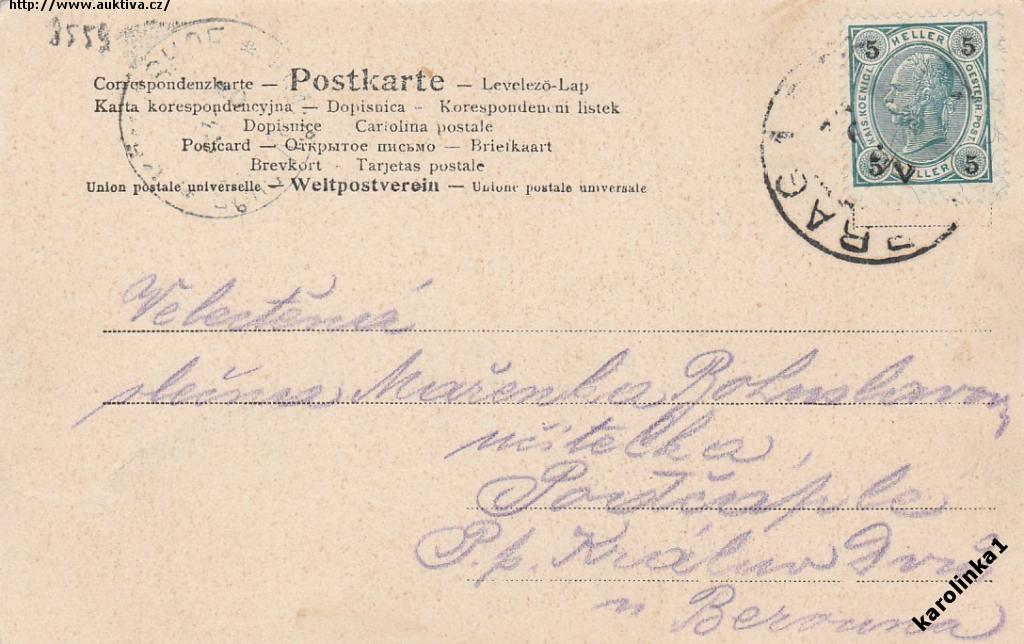 http://www.auktiva.cz/
9559
Correspondenzkarte — Postkarte — Levelező-Lap
Karta korespondencyjna — Dopisnica - Korespondenčni listek
Dopisnice Cartolina postale
Postcard — Открытое письмо — Briefkaart
Brevkort - Tarjetas postale
Union postale universelle — Weltpostverein — Unione postale universale
5 HELLER 5
KAIS. KOENIGL. OESTERR. POST.
5 HELLER 5
PRAG 1
Velectěná
slečna Mařenka Bohuslavova
učitelka,
Počáply
P.p. Králův Dvůr
u Berouna
karolinka1